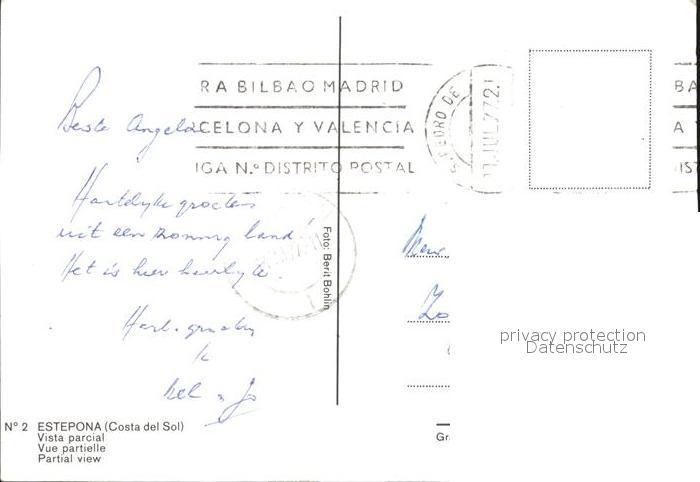 RA BILBAO MADRID
CELONA Y VALENCIA
IGA N.º DISTRITO POSTAL
S. PEDRO DE
JUL 77
BA
A
IST
Beste Angela
Hartelijke groeten
uit een zonnig land!
Het is hier heerlijk.
Hart. groeten
Foto: Berit Bohlin
Mevr.
Zo
privacy protection
Datenschutz
Nº 2 ESTEPONA (Costa del Sol)
Vista parcial
Vue partielle
Partial view
Gr